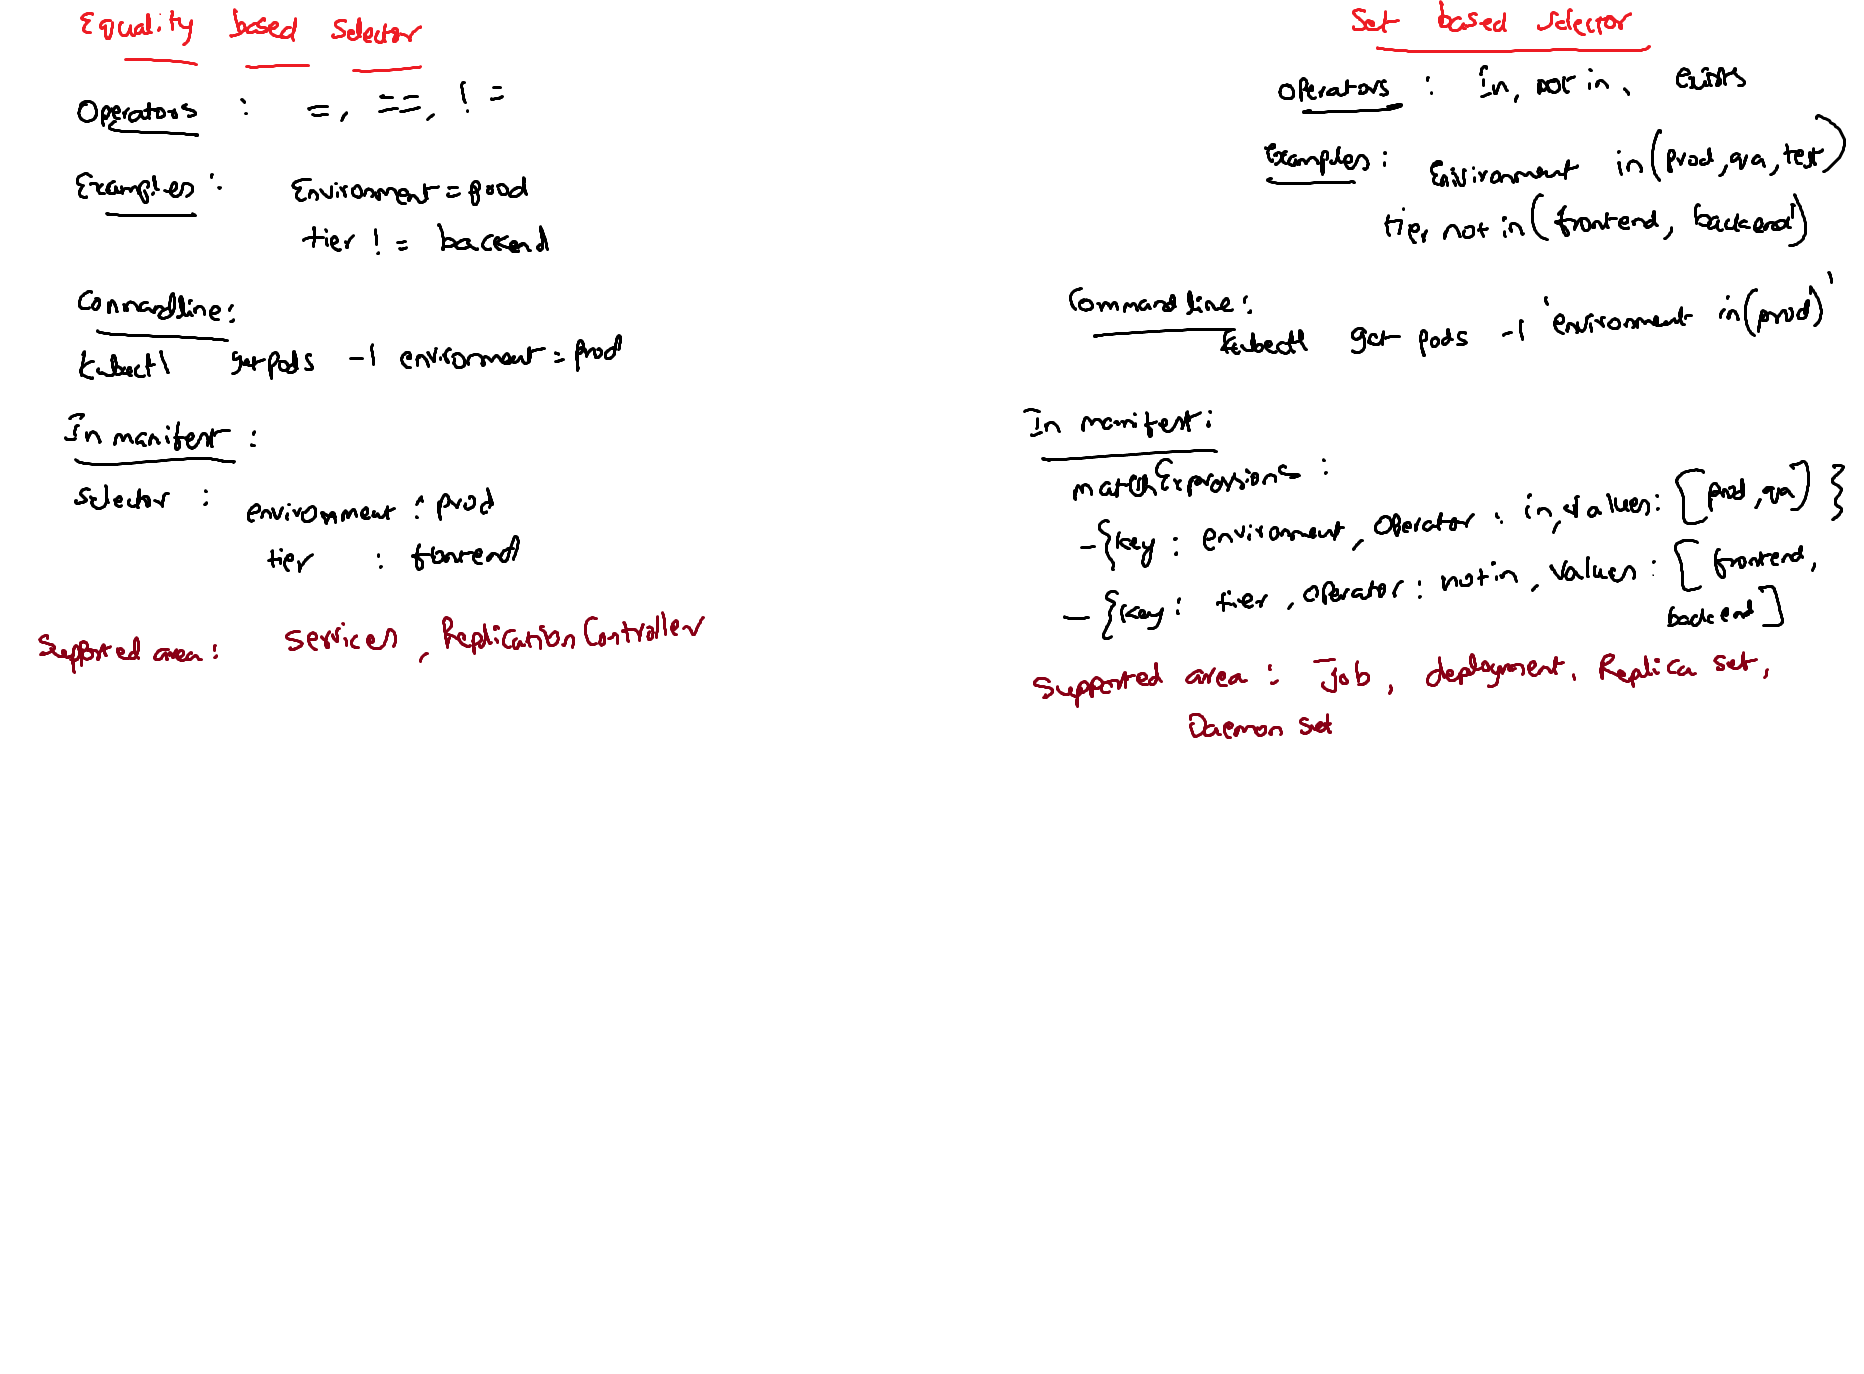 Equality based selector
Operators : =, ==, !=
Examples : Environment = prod
tier != backend
Commandline:
kubectl get pods -l environment = prod
In manifest :
selector : environment : prod
tier : frontend
Supported area : Services, Replication Controller
Set based selector
Operators : In, not in, exists
Examples : Environment in (prod, qa, test)
tier not in (frontend, backend)
Command line :
kubectl get pods -l 'environment in (prod)'
In manifest :
matchExpressions :
- {key : environment, Operator : in, values : [prod, qa] }
- {key : tier, operator : not in, Values : [ frontend,
backend ]
Supported area : Job, deployment, Replica set,
Daemon set